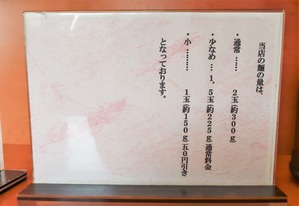 当店の麺の量は、
・通常 …… 2玉(約300g)
・少なめ … 1．5玉(約225g)通常料金
・小 ……… 1玉(約150g)五0円引き
となっております。